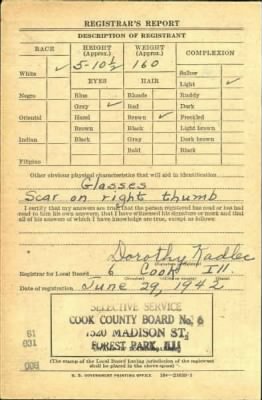 REGISTRAR'S REPORT
DESCRIPTION OF REGISTRANT
RACE HEIGHT (Approx.) WEIGHT (Approx.) COMPLEXION
White ✓ 5-10½ 160 Sallow
EYES HAIR Light ✓
Negro Blue Blonde Ruddy
Gray ✓ Red Dark
Oriental Hazel Brown ✓ Freckled
Brown Black Light brown
Indian Black Gray Dark brown
Bald Black
Filipino
Other obvious physical characteristics that will aid in identification
Glasses
Scar on right thumb
I certify that my answers are true; that the person registered has read or has had
read to him his own answers; that I have witnessed his signature or mark and that
all of his answers of which I have knowledge are true, except as follows:
Dorothy Kadlec
Registrar for Local Board 6 Cook Ill.
Date of registration June 29, 1942
SELECTIVE SERVICE
COOK COUNTY BOARD No. 6
7520 MADISON ST.
FOREST PARK, ILL
(The stamp of the Local Board having jurisdiction of the registrant
shall be placed in the above space)
U. S. GOVERNMENT PRINTING OFFICE